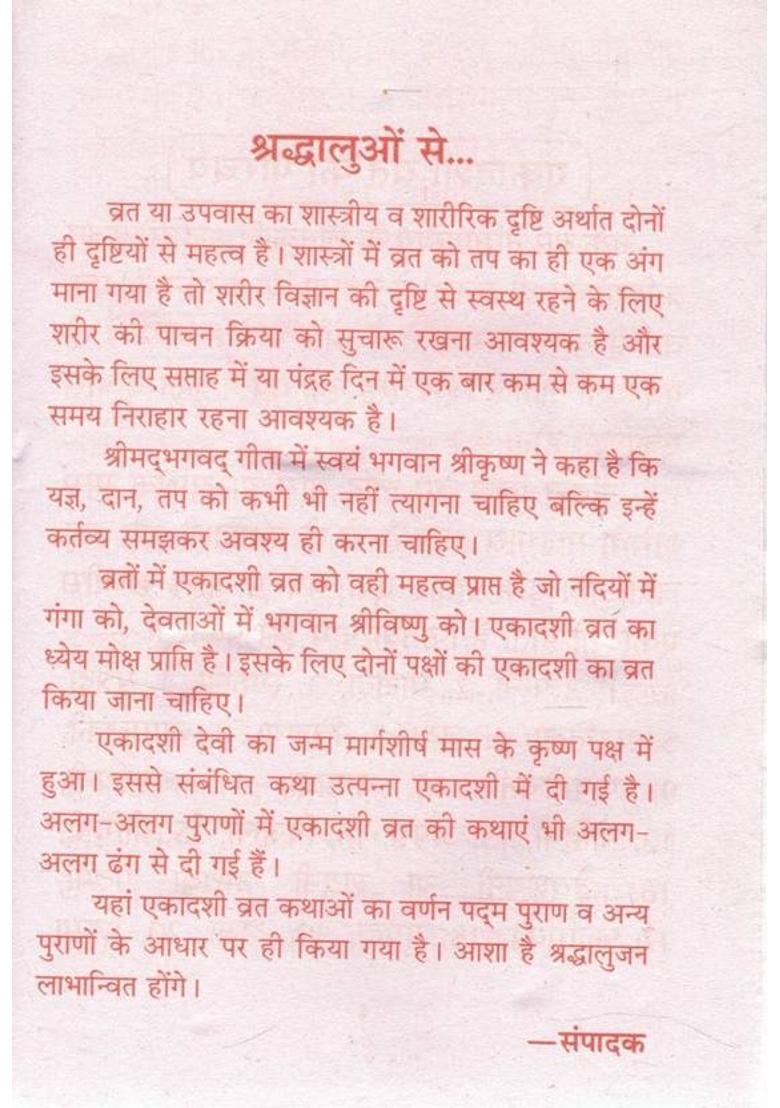 श्रद्धालुओं से...
व्रत या उपवास का शास्त्रीय व शारीरिक दृष्टि अर्थात दोनों
ही दृष्टियों से महत्व है। शास्त्रों में व्रत को तप का ही एक अंग
माना गया है तो शरीर विज्ञान की दृष्टि से स्वस्थ रहने के लिए
शरीर की पाचन क्रिया को सुचारू रखना आवश्यक है और
इसके लिए सप्ताह में या पंद्रह दिन में एक बार कम से कम एक
समय निराहार रहना आवश्यक है।
श्रीमद्‌भगवद् गीता में स्वयं भगवान श्रीकृष्ण ने कहा है कि
यज्ञ, दान, तप को कभी भी नहीं त्यागना चाहिए बल्कि इन्हें
कर्तव्य समझकर अवश्य ही करना चाहिए।
व्रतों में एकादशी व्रत को वही महत्व प्राप्त है जो नदियों में
गंगा को, देवताओं में भगवान श्रीविष्णु को। एकादशी व्रत का
ध्येय मोक्ष प्राप्ति है। इसके लिए दोनों पक्षों की एकादशी का व्रत
किया जाना चाहिए।
एकादशी देवी का जन्म मार्गशीर्ष मास के कृष्ण पक्ष में
हुआ। इससे संबंधित कथा उत्पन्ना एकादशी में दी गई है।
अलग-अलग पुराणों में एकादशी व्रत की कथाएं भी अलग-
अलग ढंग से दी गई हैं।
यहां एकादशी व्रत कथाओं का वर्णन पद्‌म पुराण व अन्य
पुराणों के आधार पर ही किया गया है। आशा है श्रद्धालुजन
लाभान्वित होंगे।
—संपादक